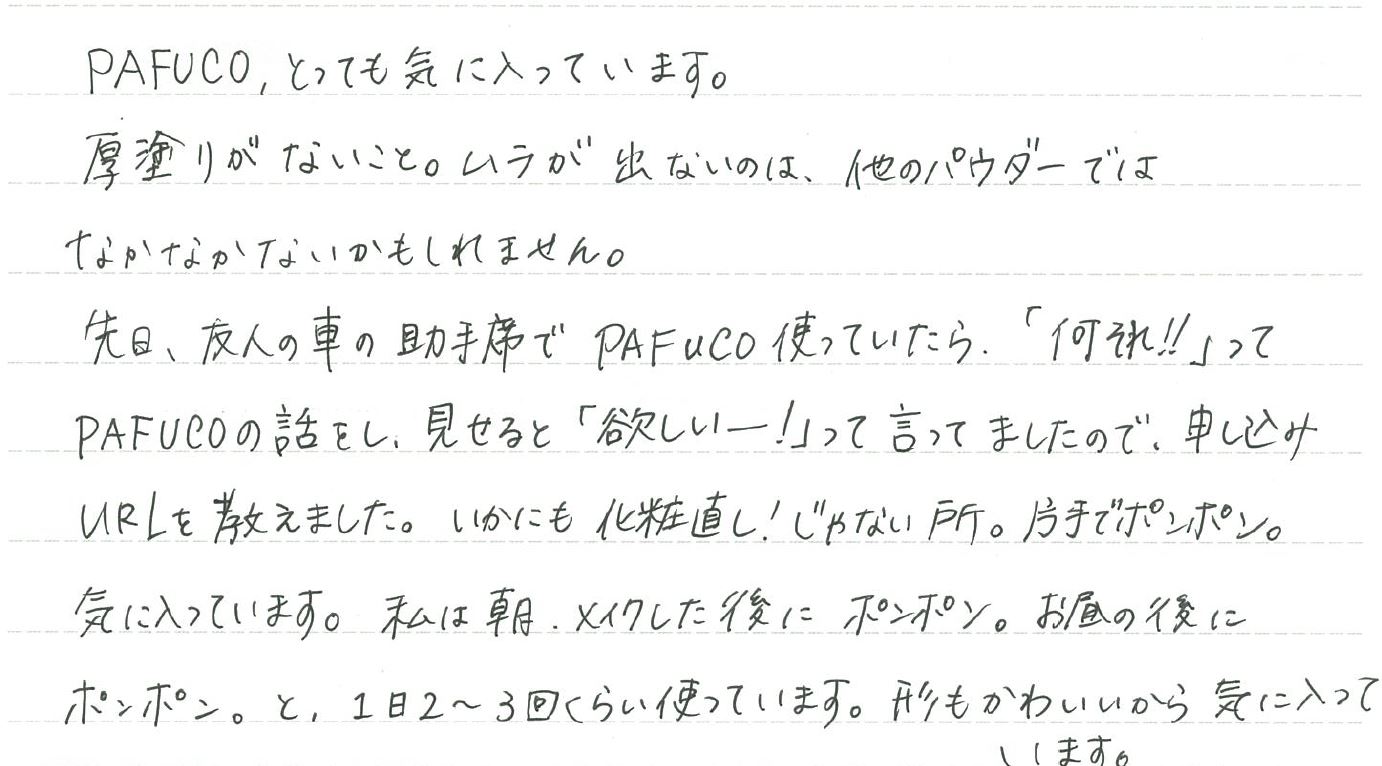 PAFUCO,とっても気に入っています。
厚塗りがないこと。ムラが出ないのは、他のパウダーでは
なかなかないかもしれません。
先日、友人の車の助手席でPAFUCO使っていたら、「何それ!!」って
PAFUCOの話をし、見せると「欲しいー!」って言ってましたので、申し込み
URLを教えました。いかにも化粧直し!じゃない所。片手でポンポン。
気に入っています。私は朝、メイクした後にポンポン。お昼の後に
ポンポン。と、1日2〜3回くらい使っています。形もかわいいから気に入って
います。